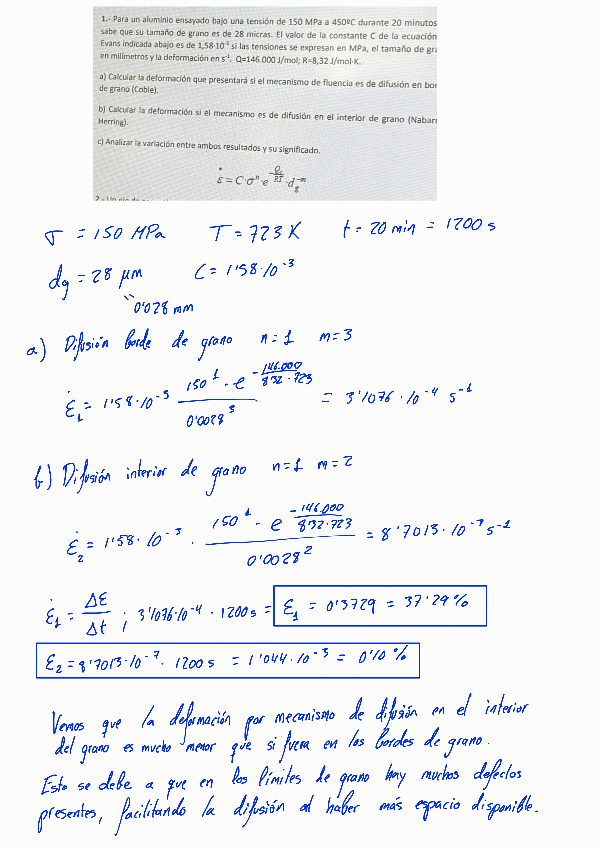 1.- Para un aluminio ensayado bajo una tensión de 150 MPa a 450ºC durante 20 minutos
sabe que su tamaño de grano es de 28 micras. El valor de la constante C de la ecuación
Evans indicada abajo es de 1,58·10⁻³ si las tensiones se expresan en MPa, el tamaño de
en milímetros y la deformación en s⁻¹. Q=146.000 J/mol; R=8,32 J/mol·K.
a) Calcular la deformación que presentará si el mecanismo de fluencia es de difusión en
de grano (Coble).
b) Calcular la deformación si el mecanismo es de difusión en el interior de grano
Herring).
c) Analizar la variación entre ambos resultados y su significado.
ε̇ = C·σⁿ·e^(-Q/RT)·d_g^(-m)
σ = 150 MPa T = 723 K t = 20 min = 1200 s
dg = 28 μm C = 1'58·10⁻³
0'028 mm
a) Difusión borde de grano n=1 m=3
ε̇₁ = 1'58·10⁻³ 150¹ · e^(-146.000/8'32·723) / 0'0028³ = 3'1076·10⁻⁴ s⁻¹
b) Difusión interior de grano n=1 m=2
ε̇₂ = 1'58·10⁻³ · 150¹ · e^(-146.000/8'32·723) / 0'0028² = 8'7013·10⁻⁷ s⁻¹
ε̇₁ = Δε/Δt ; 3'1076·10⁻⁴ · 1200 s = ε₁ = 0'3729 = 37'29 %
ε₂ = 8'7013·10⁻⁷ · 1200 s = 1'044·10⁻³ = 0'10 %
Vemos que la deformación por mecanismo de difusión en el interior
del grano es mucho menor que si fuera en los bordes de grano.
Esto se debe a que en los límites de grano hay muchos defectos
presentes, facilitando la difusión al haber más espacio disponible.